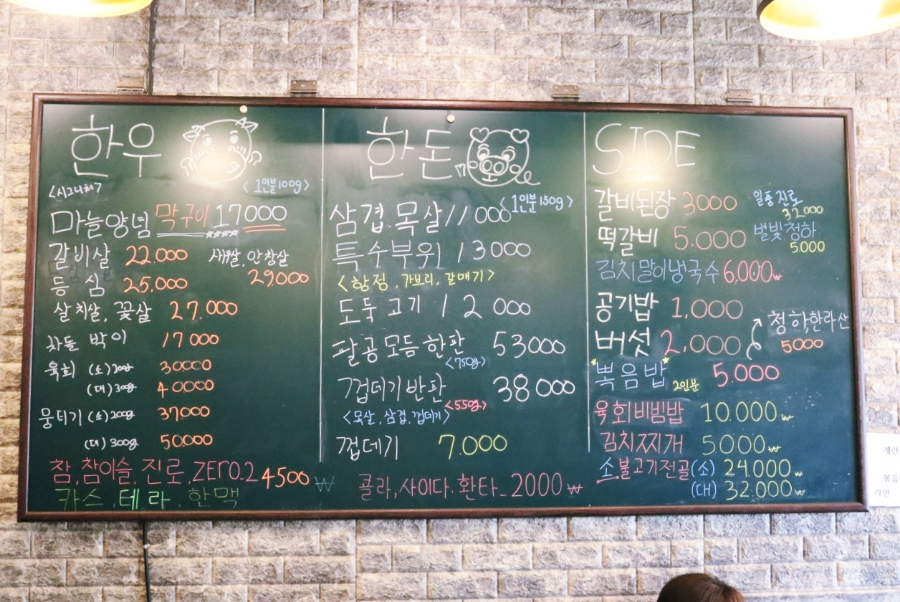 한우
<1인분 100g>
<시그니처>
마늘양념 막구이 17000
갈비살 22.000
안창살
29,000
등심 25.000
살치살, 꽃살 27.000
차돌박이 17000
육회 (소) 200g 30000
(대) 300g 40000
뭉티기 (소) 200g 37000
(대) 300g 50000
참,참이슬,진로,ZERO.2 4500₩
카스,테라,한맥
한돈
<1인분 150g>
삼겹.목살 11000
특수부위 13000
<항정, 가브리, 갈매기>
도둑고기 12000
팔공모듬한판 53000
<750g>
껍데기반판 38000
<550g>
<목살, 삼겹, 껍데기>
껍데기 7.000
콜라,사이다.환타_2000₩
SIDE
갈비된장 3000
일품진로
32,000
떡갈비 5.000
별빛청하
5000
김치말이냉국수 6,000₩
공기밥 1,000
버섯 2,000
청하,한라산
5000
볶음밥 2인분 5.000
육회비빔밥 10.000₩
김치찌개 5000₩
소불고기전골 (소) 24.000₩
(대) 32.000₩
계란
볶음
라면